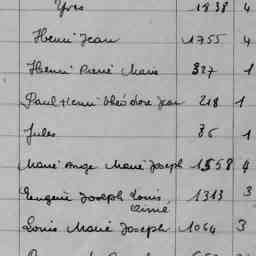 Yves 1838 4
Henri Jean 1755 4
Henri Pierre Marie 327 1
Paul Henri Théodore Jean 218 1
Jules 86 1
Marie Ange Marie Joseph 1558 4
Eugène Joseph Louis 1313 3
Aimé
Louis Marie Joseph 1064 3